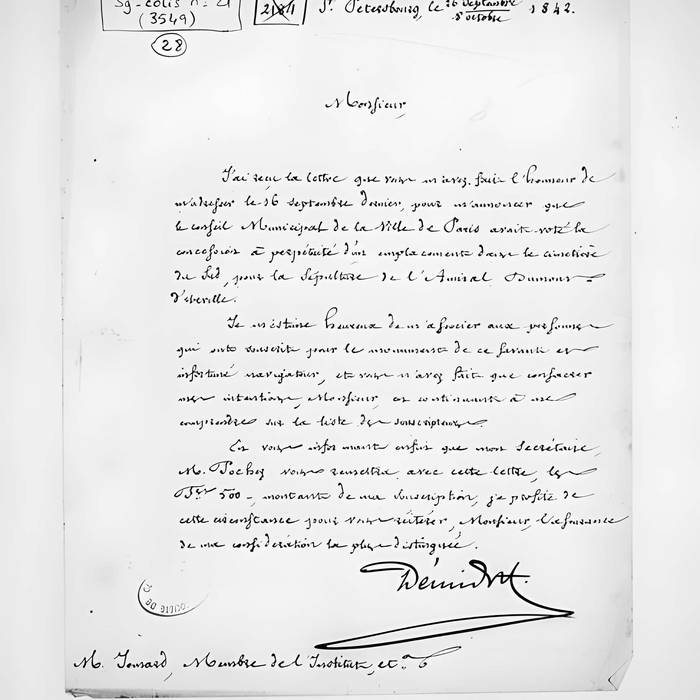 Sg-colis n° 21
(3549)
28
St Petersbourg, le 26 Septembre
8 octobre 1842.
Monsieur,
J'ai reçu la lettre que vous m'avez fait l'honneur de
m'adresser le 16 septembre dernier, pour m'annoncer que
le conseil Municipal de la Ville de Paris avait voté la
concession à perpétuité d'un emplacement dans le cimetière
du Sud, pour la Sépulture de l'Amiral Dumont-
d'Urville.
Je m'estime heureux de m'associer aux personnes
qui ont souscrit pour le monument de ce savant et
infortuné navigateur, et vous n'avez fait que consacrer
mes intentions, Monsieur, en continuant à me
comprendre sur la liste des souscripteurs.
En vous informant enfin que mon Secrétaire,
M. Pochez vous remettra avec cette lettre, les
Frs 500-, montant de ma souscription, je profite de
cette circonstance pour vous réitérer, Monsieur, l'assurance
de ma considération la plus distinguée.
Démidoff
M. Jomard, Membre de l'Institut, etc.